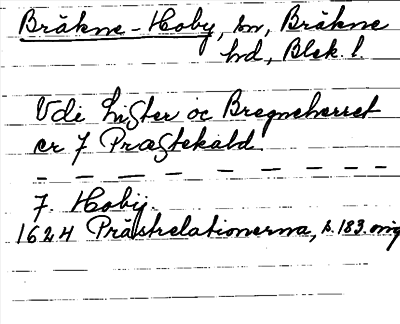 Bräkne-Hoby, sn, Bräkne
hd, Blek. l.
Udi Lister oc Bregneherret
er 7 Præstekald.
7. Hoby.
1624 Prästrelationerna, s. 183. orig